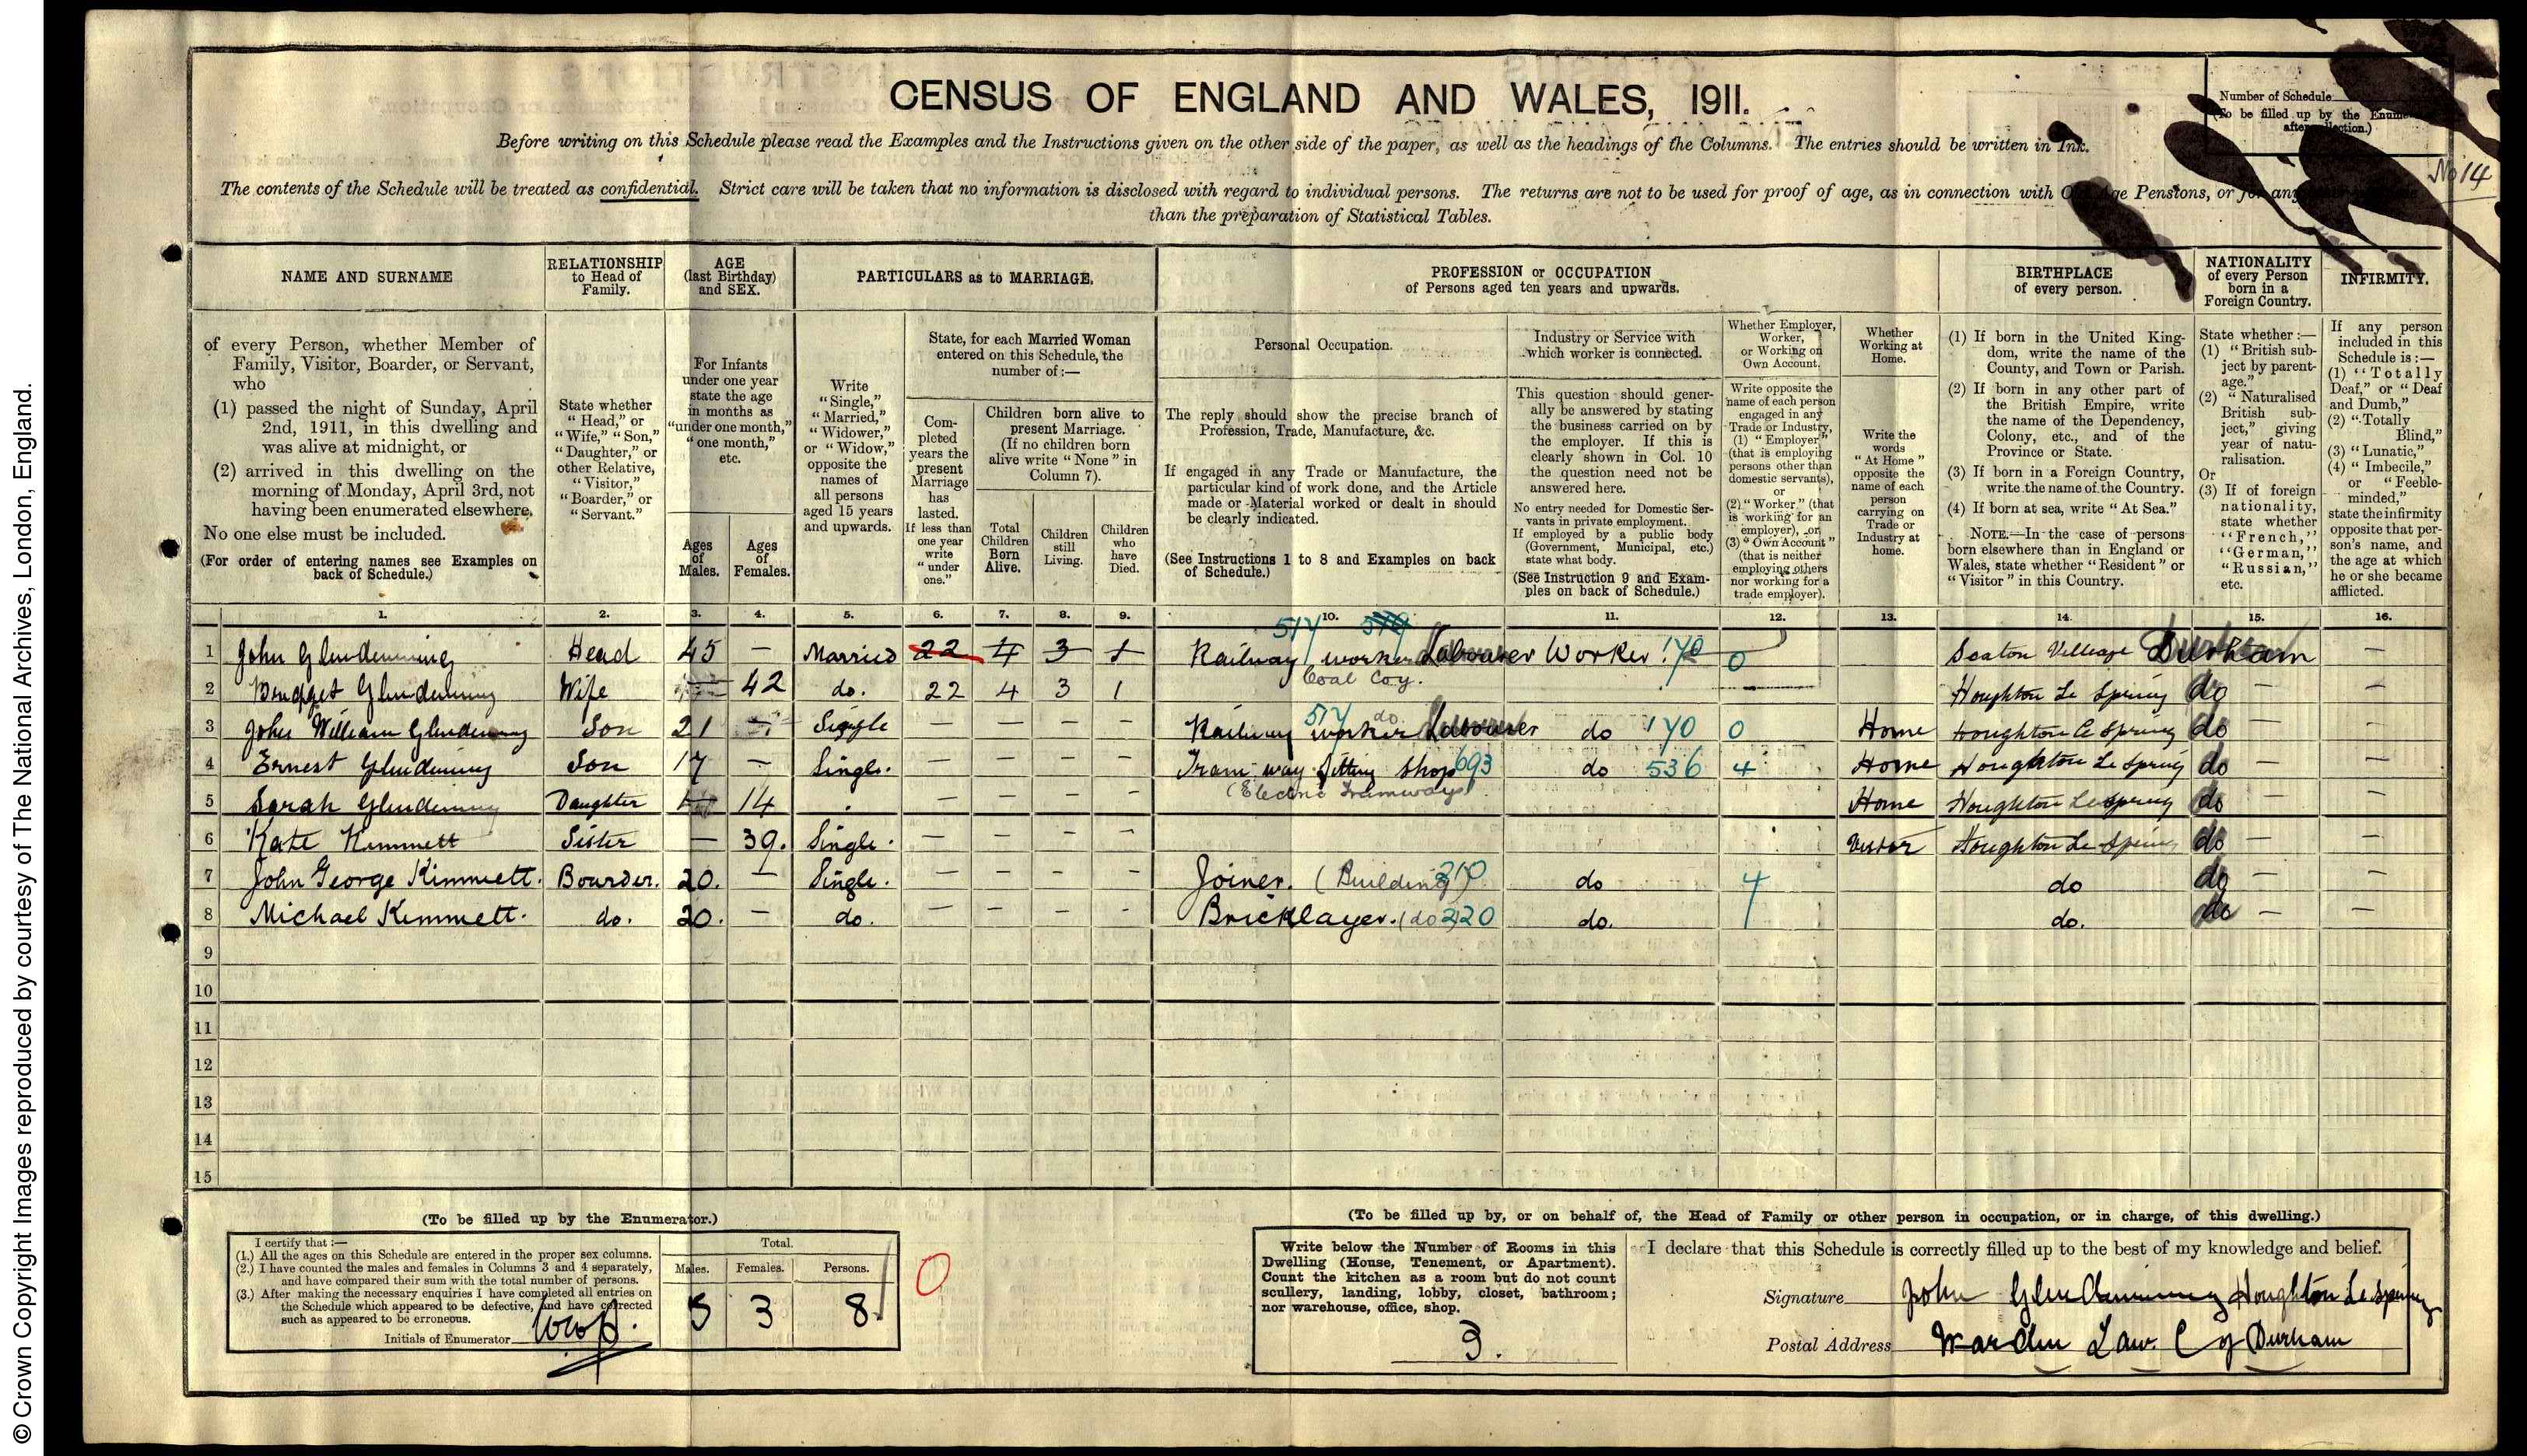 © Crown Copyright Images reproduced by courtesy of The National Archives, London, England.
CENSUS OF ENGLAND AND WALES, 1911.
Number of Schedule
(To be filled up by the Enume
after collection.)
No 14
Before writing on this Schedule please read the Examples and the Instructions given on the other side of the paper, as well as the headings of the Columns. The entries should be written in Ink.
The contents of the Schedule will be treated as confidential. Strict care will be taken that no information is disclosed with regard to individual persons. The returns are not to be used for proof of age, as in connection with Old Age Pensions, or for any
than the preparation of Statistical Tables.
NAME AND SURNAME
of every Person, whether Member of
Family, Visitor, Boarder, or Servant,
who
(1) passed the night of Sunday, April
2nd, 1911, in this dwelling and
was alive at midnight, or
(2) arrived in this dwelling on the
morning of Monday, April 3rd, not
having been enumerated elsewhere.
No one else must be included.
(For order of entering names see Examples on
back of Schedule.)
RELATIONSHIP
to Head of
Family.
State whether
"Head," or
"Wife," "Son,"
"Daughter," or
other Relative,
"Visitor,"
"Boarder," or
"Servant."
AGE
(last Birthday)
and SEX.
For Infants
under one year
state the age
in months as
"under one month,"
"one month,"
etc.
Ages
of
Males.
Ages
of
Females.
PARTICULARS as to MARRIAGE.
Write
"Single,"
"Married,"
"Widower,"
or "Widow,"
opposite the
names of
all persons
aged 15 years
and upwards.
State, for each Married Woman
entered on this Schedule, the
number of:—
Com-
pleted
years the
present
Marriage
has
lasted.
If less than
one year
write
"under
one."
Children born alive to
present Marriage.
(If no children born
alive write "None" in
Column 7).
Total
Children
Born
Alive.
Children
still
Living.
Children
who
have
Died.
PROFESSION or OCCUPATION
of Persons aged ten years and upwards.
Personal Occupation.
The reply should show the precise branch of
Profession, Trade, Manufacture, &c.
If engaged in any Trade or Manufacture, the
particular kind of work done, and the Article
made or Material worked or dealt in should
be clearly indicated.
(See Instructions 1 to 8 and Examples on back
of Schedule.)
Industry or Service with
which worker is connected.
This question should gener-
ally be answered by stating
the business carried on by
the employer. If this is
clearly shown in Col. 10
the question need not be
answered here.
No entry needed for Domestic Ser-
vants in private employment.
If employed by a public body
(Government, Municipal, etc.)
state what body.
(See Instruction 9 and Exam-
ples on back of Schedule.)
Whether Employer,
Worker,
or Working on
Own Account.
Write opposite the
name of each person
engaged in any
Trade or Industry,
(1) "Employer"
(that is employing
persons other than
domestic servants),
or
(2) "Worker" (that
is working for an
employer), or
(3) "Own Account"
(that is neither
employing others
nor working for a
trade employer).
Whether
Working at
Home.
Write the
words
"At Home"
opposite the
name of each
person
carrying on
Trade or
Industry at
home.
BIRTHPLACE
of every person.
(1) If born in the United King-
dom, write the name of the
County, and Town or Parish.
(2) If born in any other part of
the British Empire, write
the name of the Dependency,
Colony, etc., and of the
Province or State.
(3) If born in a Foreign Country,
write the name of the Country.
(4) If born at sea, write "At Sea."
NOTE.—In the case of persons
born elsewhere than in England or
Wales, state whether "Resident" or
"Visitor" in this Country.
NATIONALITY
of every Person
born in a
Foreign Country.
State whether:—
(1) "British sub-
ject by parent-
age."
(2) "Naturalised
British sub-
ject," giving
year of natu-
ralisation.
Or
(3) If of foreign
nationality,
state whether
"French,"
"German,"
"Russian,"
etc.
INFIRMITY.
If any person
included in this
Schedule is:—
(1) "Totally
Deaf," or "Deaf
and Dumb,"
(2) "Totally
Blind,"
(3) "Lunatic,"
(4) "Imbecile,"
or "Feeble-
minded,"
state the infirmity
opposite that per-
son's name, and
the age at which
he or she became
afflicted.
1. 2. 3. 4. 5. 6. 7. 8. 9. 10. 11. 12. 13. 14. 15. 16.
517
1 John Glendenning Head 45 — Married 22 4 3 1 Railway worker Labourer Worker 170 0 Seaton Village Durham —
Coal Coy.
2 Bridget Glendenning Wife 42 do. 22 4 3 1 Houghton Le Spring do — —
517 do
3 John William Glendenning Son 21 — Single — — — — Railway worker Labourer do 170 0 Home Houghton Le Spring do — —
4 Ernest Glendenning Son 17 — Single. — — — — Tram-way fitting shop 693 do 536 4 Home Houghton Le Spring do — —
(Electric Tramways)
5 Sarah Glendenning Daughter 14 — — — — Home Houghton Le Spring do — —
6 Kate Kimmett Sister — 39. Single. — — — — Visitor Houghton Le Spring do — —
7 John George Kimmett. Bourder. 20. — Single. — — — — Joiner. (Building) 210 do 4 do do — —
8 Michael Kimmett. do. 20. — do. — — — — Bricklayer. (do) 220 do. do. do — —
9
10
11
12
13
14
15
(To be filled up by the Enumerator.)
I certify that:—
(1.) All the ages on this Schedule are entered in the proper sex columns.
(2.) I have counted the males and females in Columns 3 and 4 separately,
and have compared their sum with the total number of persons.
(3.) After making the necessary enquiries I have completed all entries on
the Schedule which appeared to be defective, and have corrected
such as appeared to be erroneous.
Initials of Enumerator
Total.
Males. Females. Persons.
5 3 8
0
(To be filled up by, or on behalf of, the Head of Family or other person in occupation, or in charge, of this dwelling.)
Write below the Number of Rooms in this
Dwelling (House, Tenement, or Apartment).
Count the kitchen as a room but do not count
scullery, landing, lobby, closet, bathroom;
nor warehouse, office, shop.
3.
I declare that this Schedule is correctly filled up to the best of my knowledge and belief.
Signature John Glendenning Houghton Le Spring
Postal Address Warden Law. C of Durham